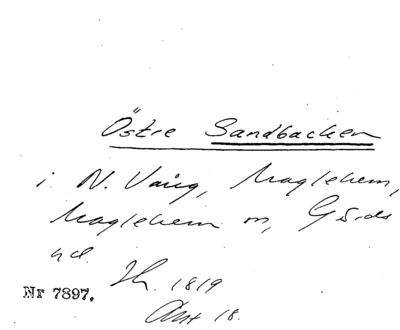 Östre Sandbacken
i N. Vång, Maglehem,
Maglehem sn, Gärds
hd.
1819
Nr 7897.
Akt 18.